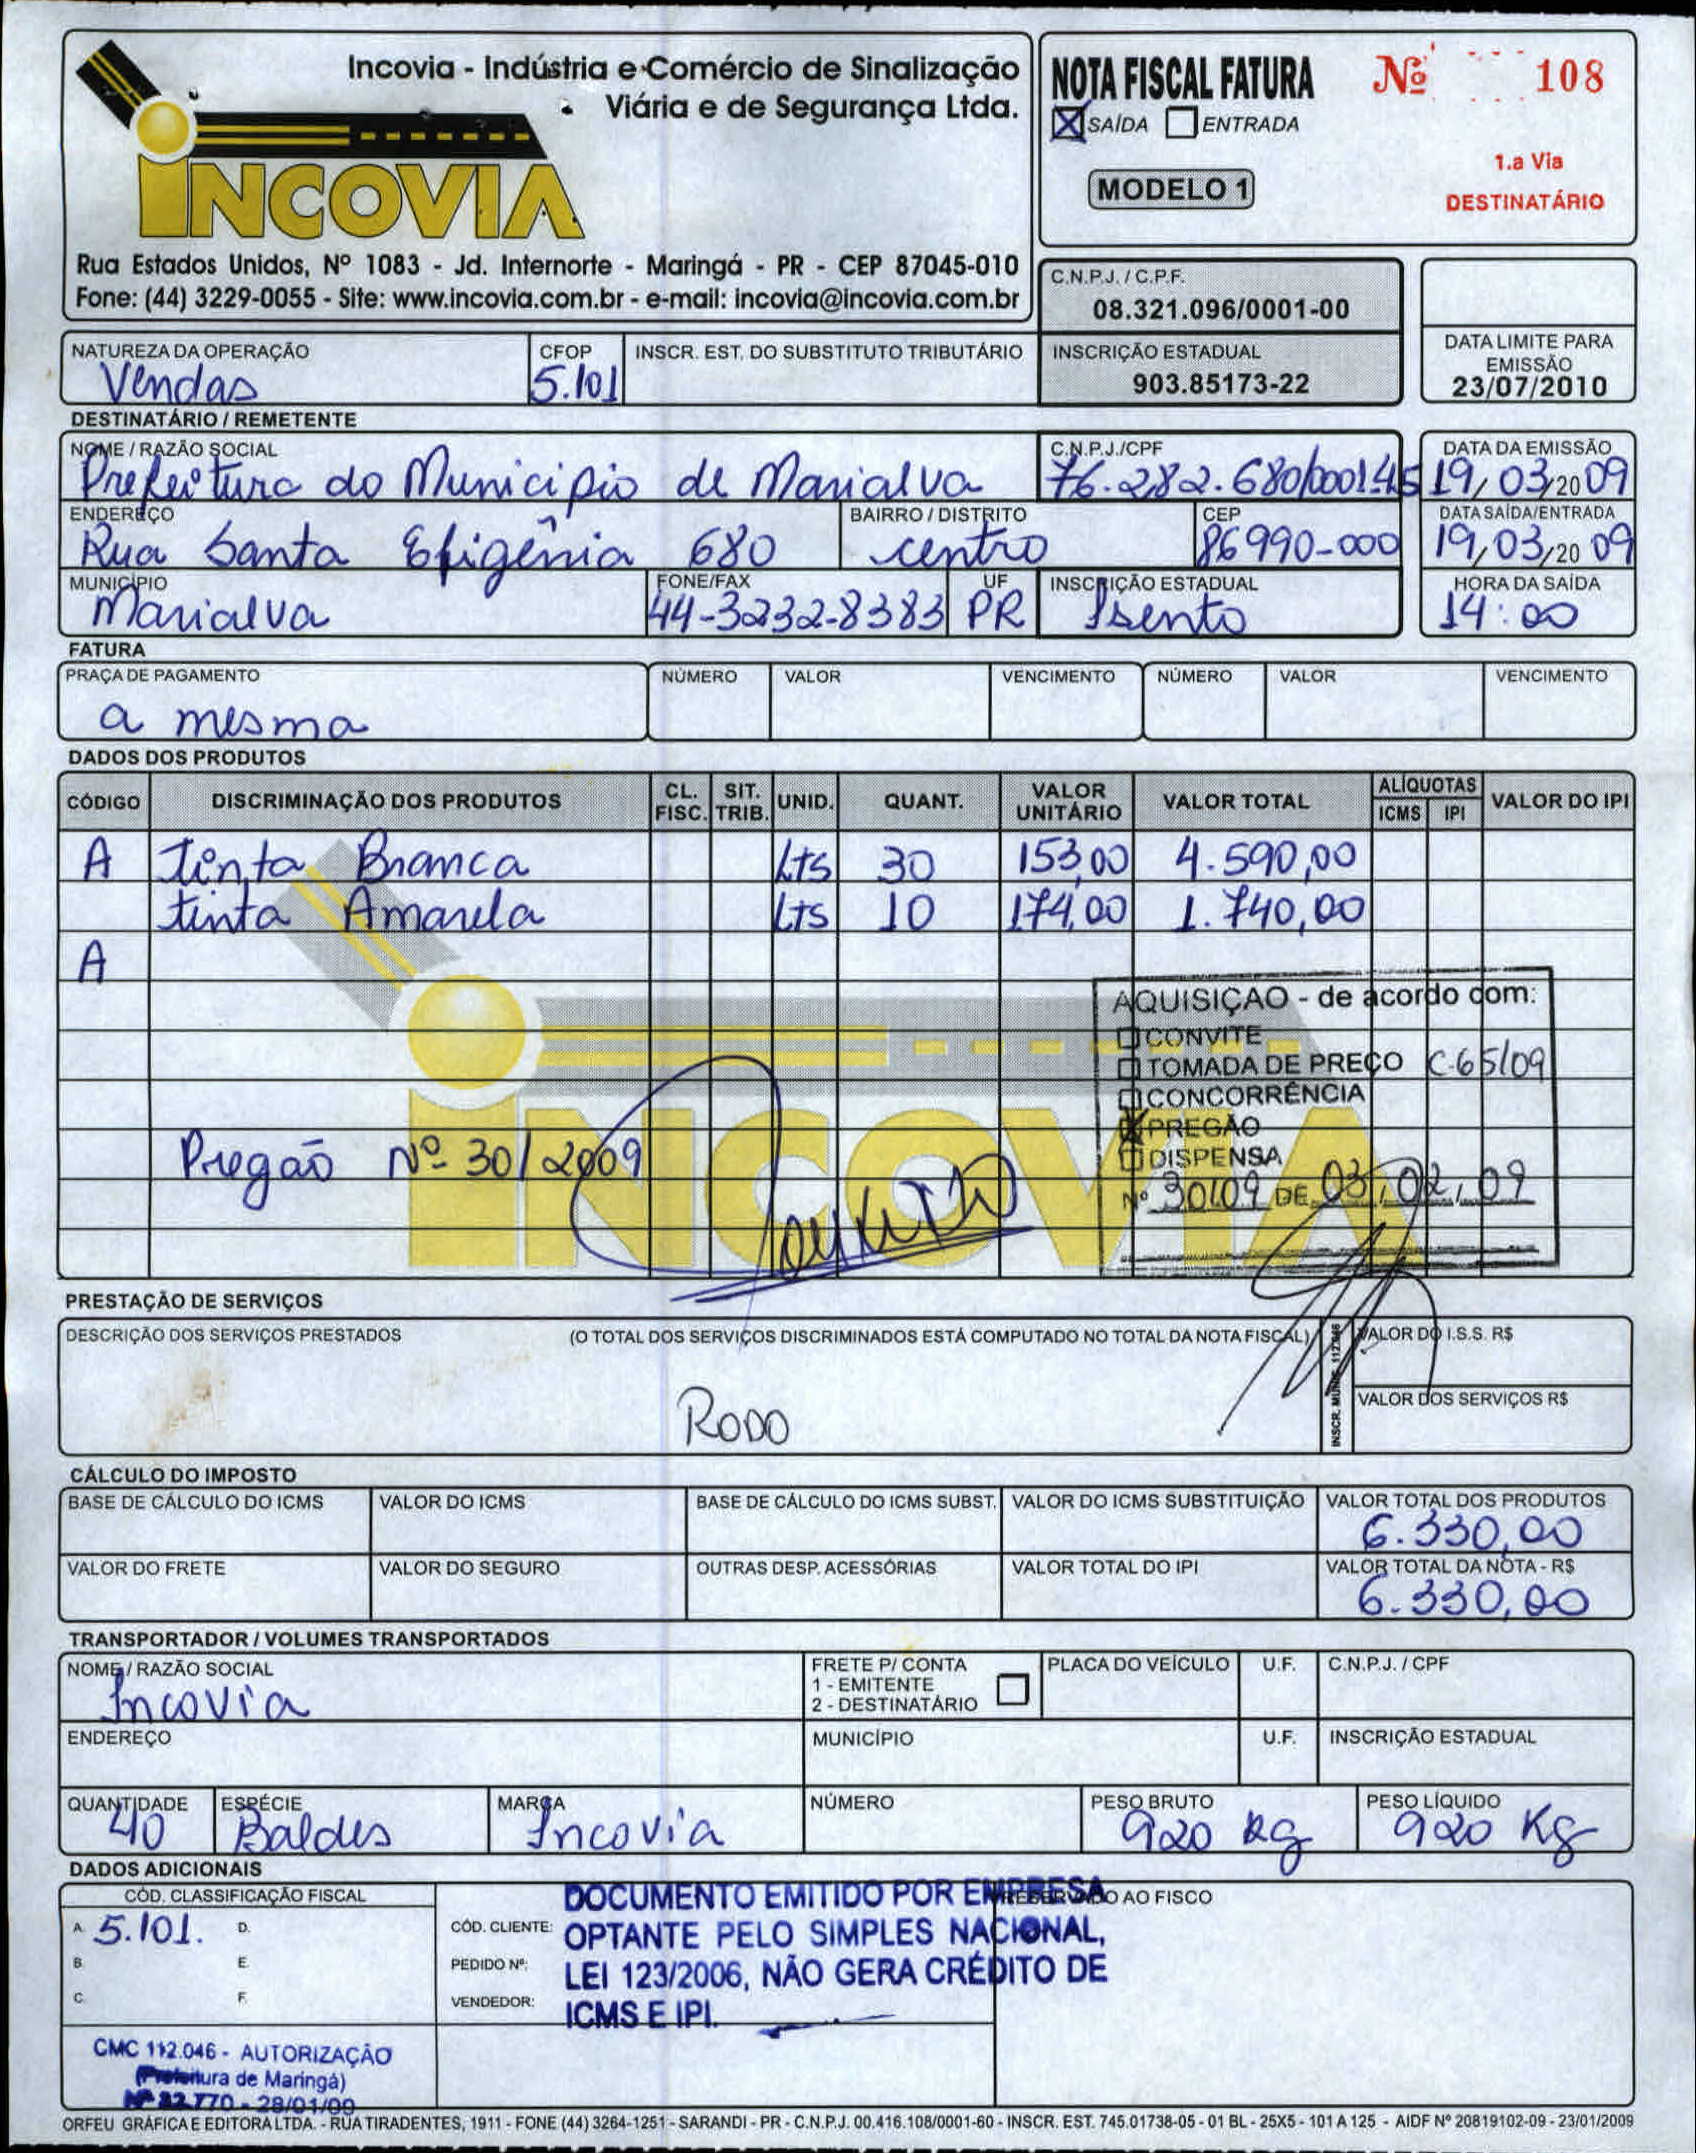 Incovia - Indústria e Comércio de Sinalização
Viária e de Segurança Ltda.
INCOVIA
Rua Estados Unidos, Nº 1083 - Jd. Internorte - Maringá - PR - CEP 87045-010
Fone: (44) 3229-0055 - Site: www.incovia.com.br - e-mail: incovia@incovia.com.br
NOTA FISCAL FATURA Nº 108
X SAÍDA ENTRADA
1.a Via
MODELO 1
DESTINATÁRIO
C.N.P.J. / C.P.F.
08.321.096/0001-00
NATUREZA DA OPERAÇÃO CFOP INSCR. EST. DO SUBSTITUTO TRIBUTÁRIO INSCRIÇÃO ESTADUAL DATA LIMITE PARA EMISSÃO
Vendas 5.101 903.85173-22 23/07/2010
DESTINATÁRIO / REMETENTE
NOME / RAZÃO SOCIAL C.N.P.J./CPF DATA DA EMISSÃO
Prefeitura do Municipio de Marialva 76.282.680/0001-45 19/03/2009
ENDEREÇO BAIRRO / DISTRITO CEP DATA SAÍDA/ENTRADA
Rua Santa Efigênia 680 centro 86990-000 19/03/2009
MUNICÍPIO FONE/FAX UF INSCRIÇÃO ESTADUAL HORA DA SAÍDA
Marialva 44-3232-8383 PR Isento 14:00
FATURA
PRAÇA DE PAGAMENTO NÚMERO VALOR VENCIMENTO NÚMERO VALOR VENCIMENTO
a mesma
DADOS DOS PRODUTOS
CÓDIGO DISCRIMINAÇÃO DOS PRODUTOS CL. FISC. SIT. TRIB. UNID. QUANT. VALOR UNITÁRIO VALOR TOTAL ALÍQUOTAS ICMS IPI VALOR DO IPI
A Tinta Branca Lts 30 153,00 4.590,00
tinta Amarela Lts 10 174,00 1.740,00
A
AQUISIÇÃO - de acordo com:
CONVITE
TOMADA DE PREÇO C-65/09
CONCORRÊNCIA
X PREGÃO
DISPENSA
Nº 30/09 DE 03/02/09
Pregão Nº 30/2009
INCOVIA
PRESTAÇÃO DE SERVIÇOS
DESCRIÇÃO DOS SERVIÇOS PRESTADOS (O TOTAL DOS SERVIÇOS DISCRIMINADOS ESTÁ COMPUTADO NO TOTAL DA NOTA FISCAL) VALOR DO I.S.S. R$
VALOR DOS SERVIÇOS R$
RODO
CÁLCULO DO IMPOSTO
BASE DE CÁLCULO DO ICMS VALOR DO ICMS BASE DE CÁLCULO DO ICMS SUBST. VALOR DO ICMS SUBSTITUIÇÃO VALOR TOTAL DOS PRODUTOS
6.330,00
VALOR DO FRETE VALOR DO SEGURO OUTRAS DESP. ACESSÓRIAS VALOR TOTAL DO IPI VALOR TOTAL DA NOTA - R$
6.330,00
TRANSPORTADOR / VOLUMES TRANSPORTADOS
NOME / RAZÃO SOCIAL FRETE P/ CONTA 1 - EMITENTE 2 - DESTINATÁRIO PLACA DO VEÍCULO U.F. C.N.P.J. / CPF
Incovia
ENDEREÇO MUNICÍPIO U.F. INSCRIÇÃO ESTADUAL
QUANTIDADE ESPÉCIE MARCA NÚMERO PESO BRUTO PESO LÍQUIDO
40 Baldes Incovia 920 Kg 920 Kg
DADOS ADICIONAIS
CÓD. CLASSIFICAÇÃO FISCAL
A. 5.101. D.
B. E.
C. F.
CÓD. CLIENTE:
PEDIDO Nº:
VENDEDOR:
DOCUMENTO EMITIDO POR EMPRESA
OPTANTE PELO SIMPLES NACIONAL,
LEI 123/2006, NÃO GERA CRÉDITO DE
ICMS E IPI.
RESERVADO AO FISCO
CMC 112.046 - AUTORIZAÇÃO
(Prefeitura de Maringá)
Nº 22.770 - 28/01/09
ORFEU GRÁFICA E EDITORA LTDA. - RUA TIRADENTES, 1911 - FONE (44) 3264-1251 - SARANDI - PR - C.N.P.J. 00.416.108/0001-60 - INSCR. EST. 745.01738-05 - 01 BL - 25X5 - 101 A 125 - AIDF Nº 20819102-09 - 23/01/2009